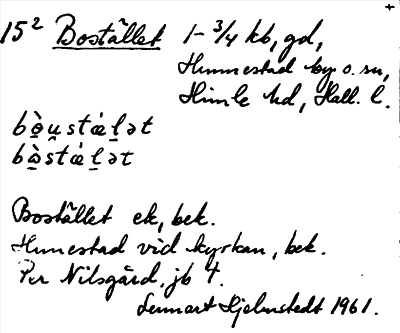 +
15² Bostället 1-3/4 kb, gd,
Hunnestad by o. sn,
Himle hd, Hall. l.
bò̤u̯stǽḷət
bò̤stǽḷət
Bostället ek, bek.
Hunestad vid kyrkan, bek.
Per Nilsgård, jb 4.
Lennart Hjelmstedt 1961.